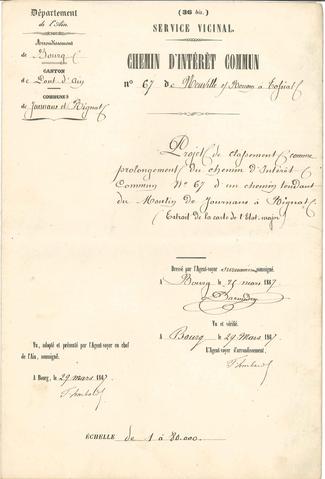 Département
de l'Ain.
Arrondissement
de Bourg
CANTON
de Pont d'Ain
COMMUNES
de Journans et Rignat
(36 bis.)
SERVICE VICINAL.
CHEMIN D'INTÉRÊT COMMUN
N° 67 de Neuville s/ Renom à
Projet de classement comme
prolongement du chemin d'Intérêt
Commun N° 67 d'un chemin tendant
du Moulin de Journans à Rignat
(Extrait de la carte de l'Etat-major)
Dressé par l'Agent-voyer soussigné.
A Bourg, le 26 mars 1887
Vu et vérifié.
A Bourg, le 29 Mars 1887
L'Agent-voyer d'arrondissement,
Vu, adopté et présenté par l'Agent-voyer en chef
de l'Ain, soussigné.
A Bourg, le 29 mars 1887
ÉCHELLE de 1 à 80.000.